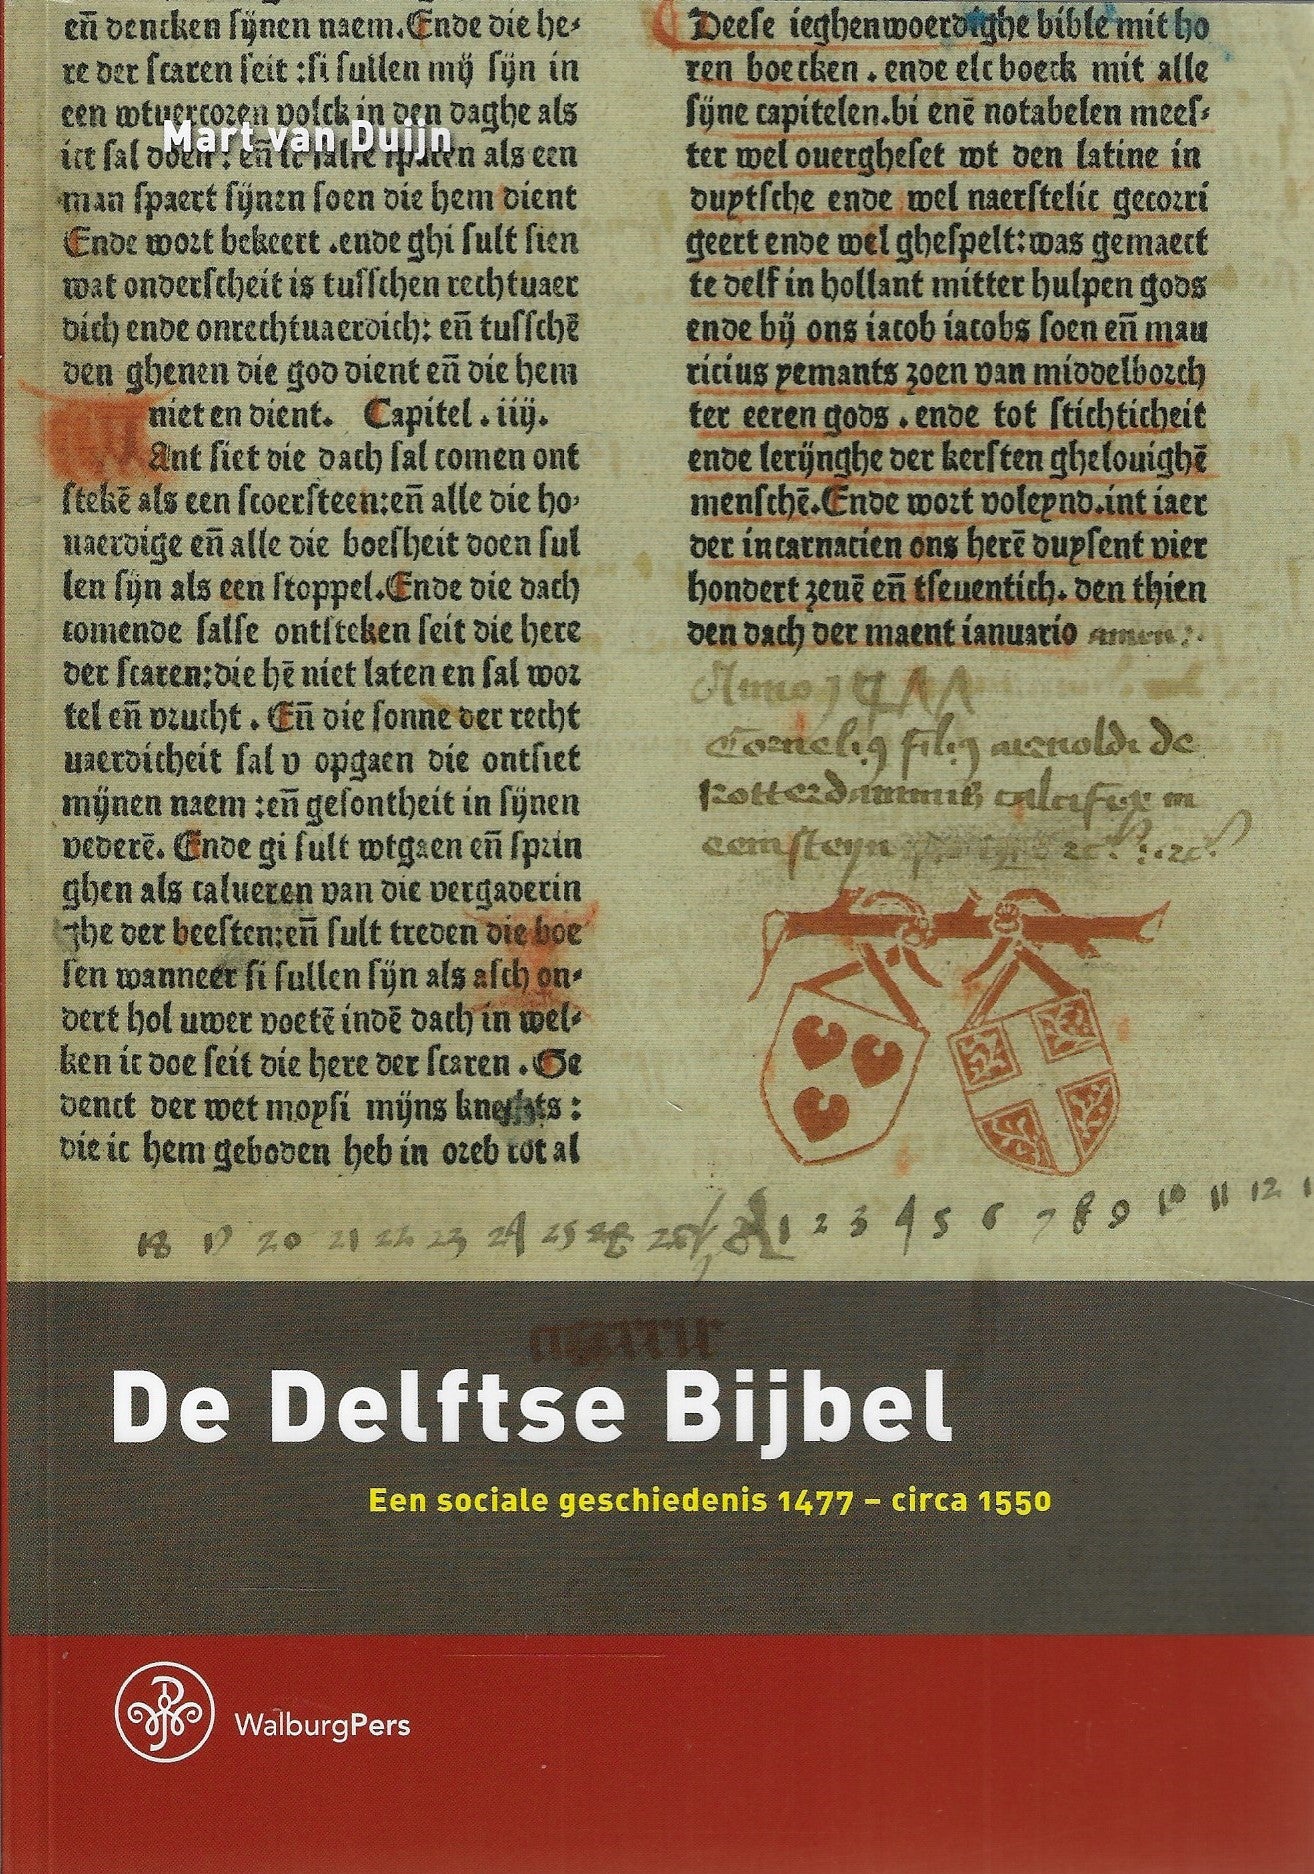 Mart van Duijn
en̄ dencken sijnen naem. Ende die he-
re der scaren seit : si sullen mij sijn in
een wtuercozen volck in den daghe als
ict sal doen : en̄ ic salse sparen als een
man spaert sijnen soen die hem dient
Ende wort bekeert . ende ghi sult sien
wat onderscheit is tusschen rechtuaer
dich ende onrechtuaerdich: en̄ tusschē
den ghenen die god dient en̄ die hem
niet en dient. Capitel . iiij.
Ant siet die dach sal comen ont
stekē als een scoersteen: en̄ alle die ho-
uaerdige en̄ alle die boesheit doen sul
len sijn als een stoppel. Ende die dach
comende salse ontsteken seit die here
der scaren: die hē niet laten en sal wor
tel en̄ vrucht . En̄ die sonne der recht
uaerdicheit sal v opgaen die ontsiet
mijnen naem : en̄ gesontheit in sijnen
vederē. Ende gi sult wtgaen en̄ sprin
ghen als calueren van die vergaderin
ghe der beesten: en̄ sult treden die boe
sen wanneer si sullen sijn als asch on-
dert hol uwer voetē indē dach in wel-
ken ic doe seit die here der scaren . Ge
denct der wet moysi mijns knechts :
die ic hem geboden heb in oreb tot al
Deese ieghenwoerdighe bible mit ho
ren boecken . ende elc boeck mit alle
sijne capitelen. bi enē notabelen mees-
ter wel ouergheset wt den latine in
duytsche ende wel naerstelic gecorri
geert ende wel ghespelt: was gemaect
te delf in hollant mitter hulpen gods
ende bij ons iacob iacobs soen en̄ mau
ricius yemants zoen van middelborch
ter eeren gods . ende tot stichticheit
ende lerijnghe der kersten ghelouighē
menschē. Ende wort voleynd. int iaer
der incarnacien ons herē duysent vier
hondert zeuē en̄ tseuentich. den thien
den dach der maent ianuario amen :.
Anno 1477
Cornelius filius arnoldi de
rotterdammis calcifex in
eemsteyn
18 19 20 21 22 23 24 25 26 1 2 3 4 5 6 7 8 9 10 11 12
De Delftse Bijbel
Een sociale geschiedenis 1477 – circa 1550
WalburgPers